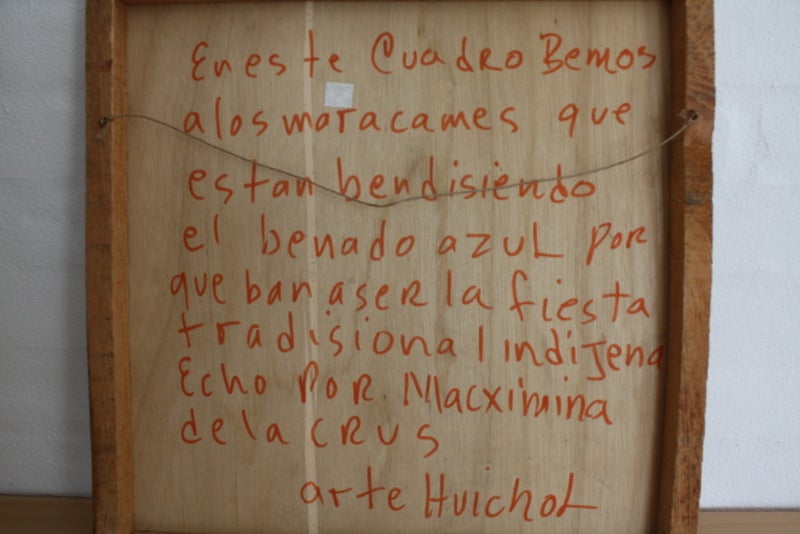 En este Cuadro Bemos
alos maracames que
estan bendisiendo
el benado azul por
que ban aser la fiesta
tradisional indijena
Echo por Macximina
dela crus
arte Huichol